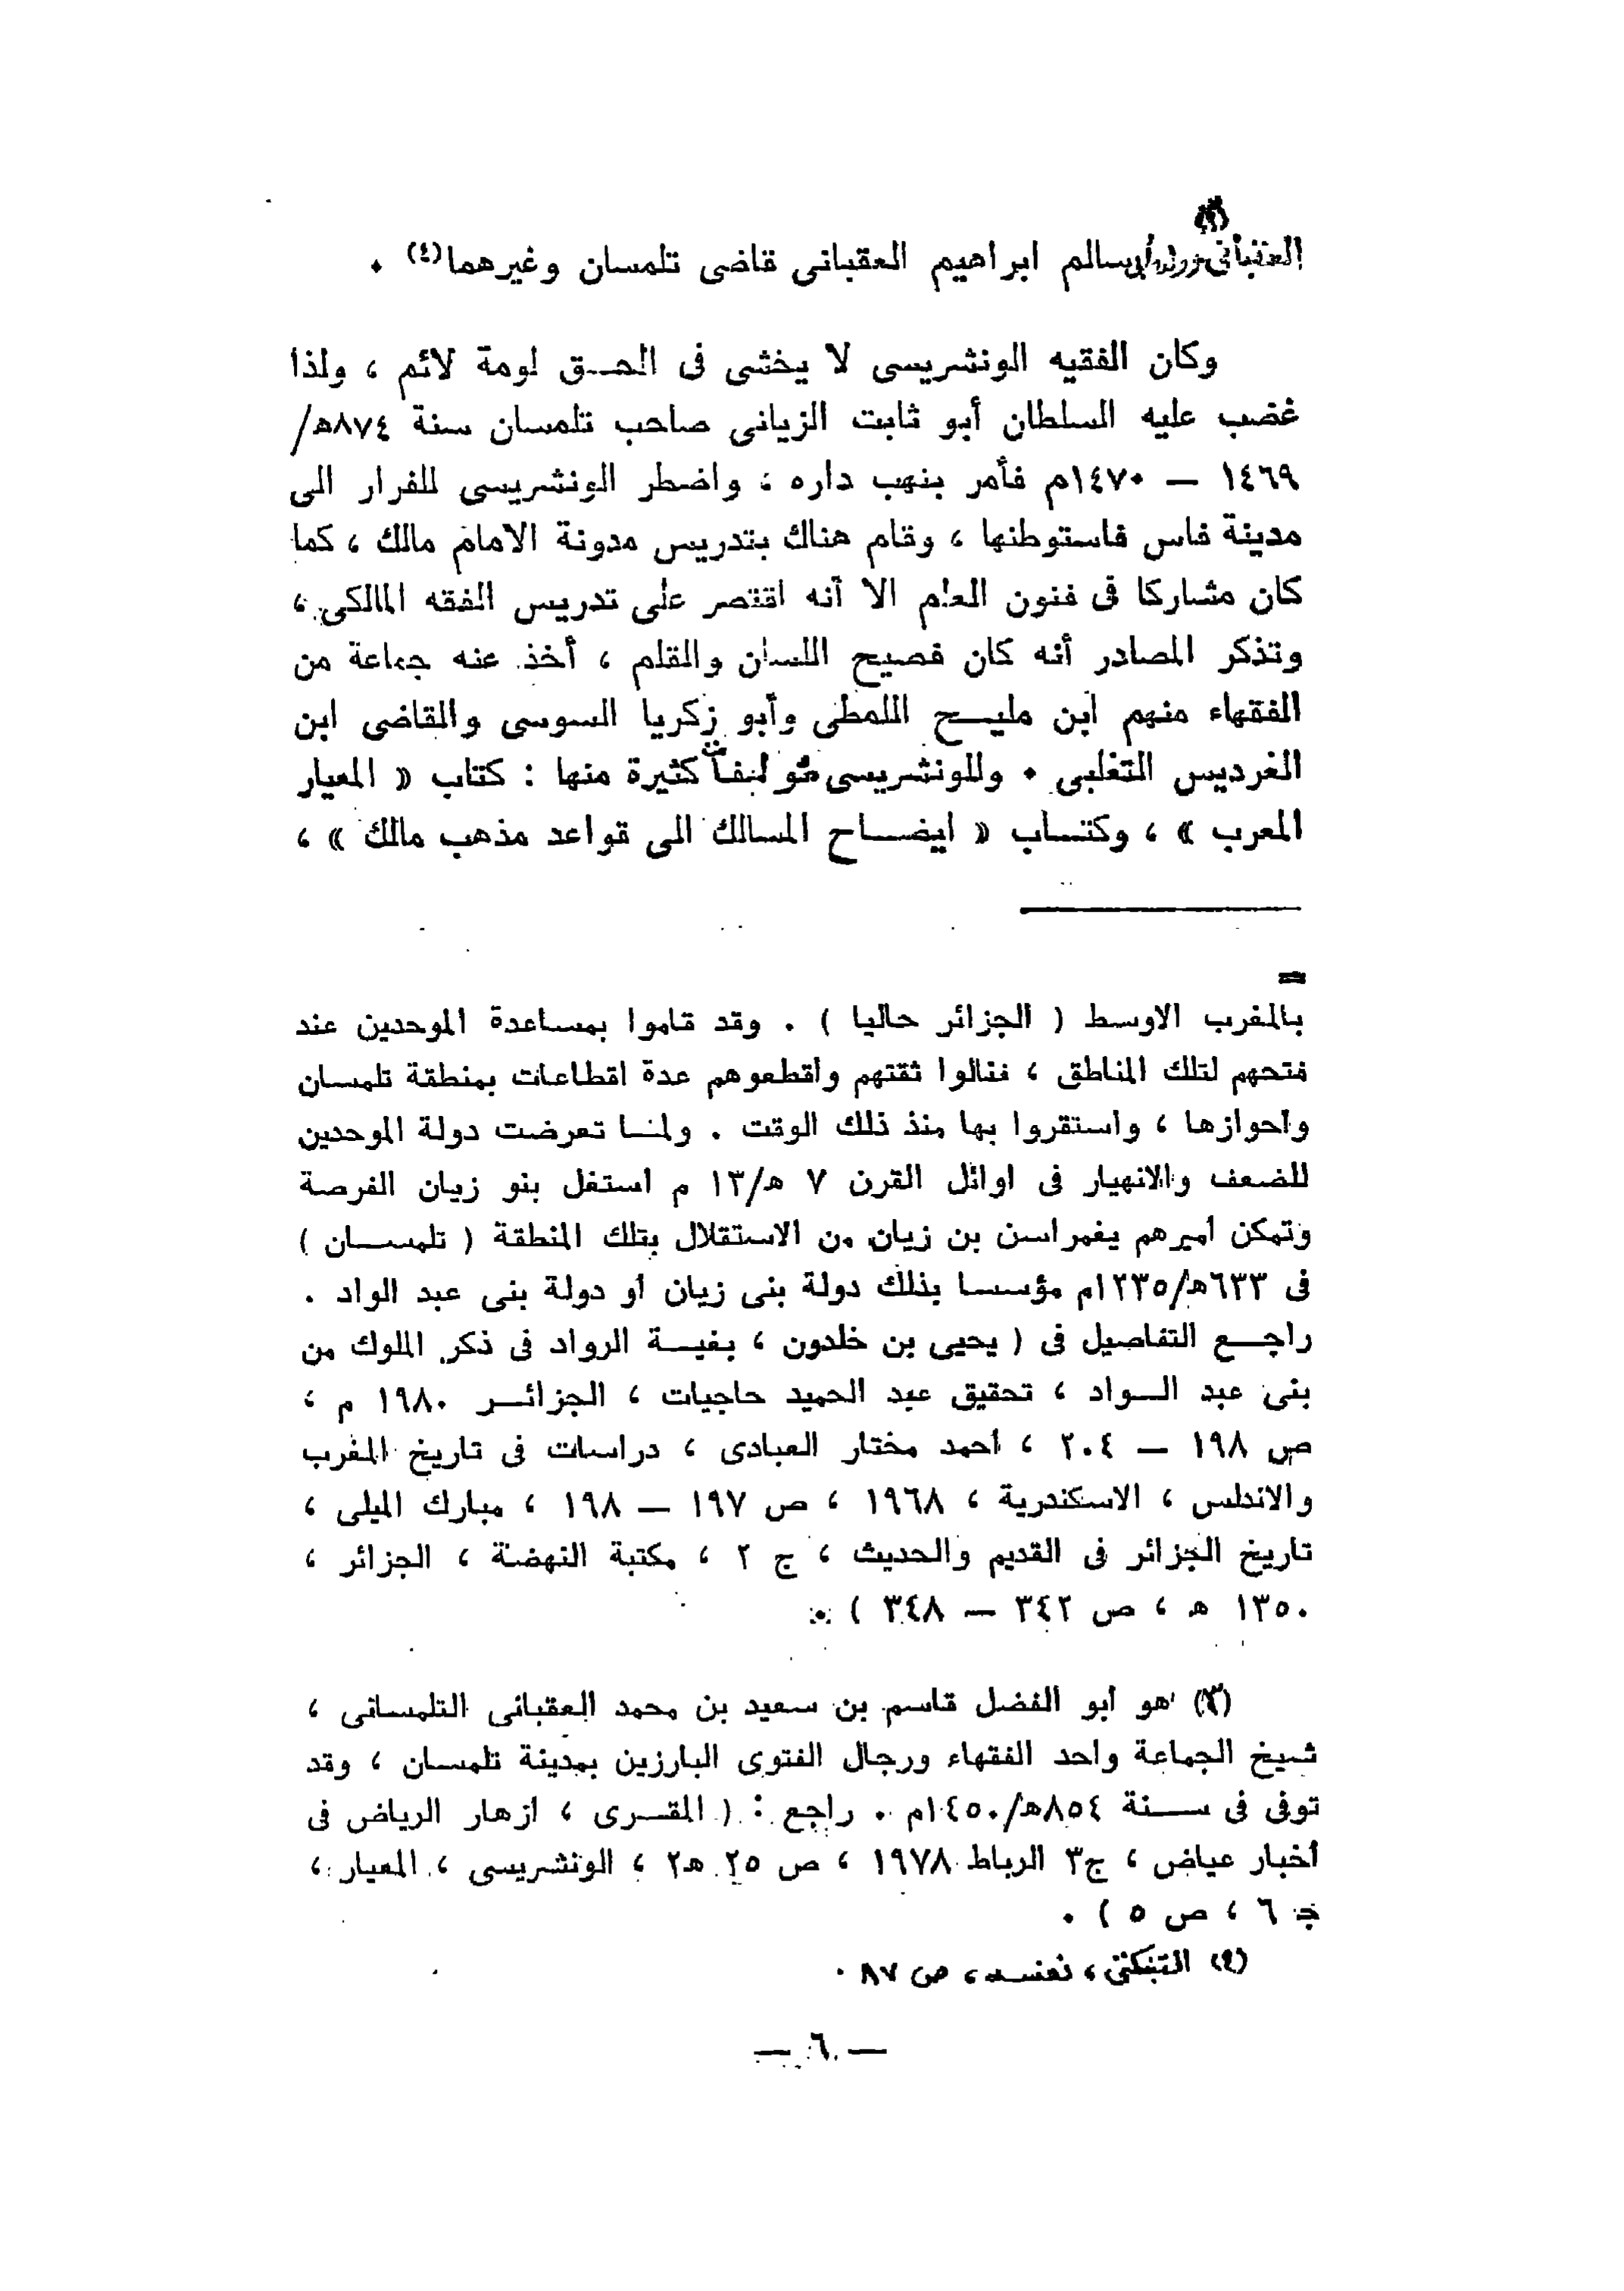 (٣)
العقبانى وولده أبى سالم ابراهيم العقبانى قاضى تلمسان وغيرهما(٤) .
وكان الفقيه الونشريسى لا يخشى فى الحـق لومة لائم ، ولذا
غضب عليه السلطان أبو ثابت الزيانى صاحب تلمسان سنة ٨٧٤هـ/
١٤٦٩ — ١٤٧٠م فأمر بنهب داره ، واضطر الونشريسى للفرار الى
مدينة فاس فاستوطنها ، وقام هناك بتدريس مدونة الامام مالك ، كما
كان مشاركا فى فنون العلم الا أنه اقتصر على تدريس الفقه المالكى ،
وتذكر المصادر أنه كان فصيح اللسان والقلم ، أخذ عنه جماعة من
الفقهاء منهم ابن مليـح اللمطى وأبو زكريا السوسى والقاضى ابن
الغرديس التغلبى . وللونشريسى مؤلفات كثيرة منها : كتاب « المعيار
المعرب » ، وكتـاب « ايضـاح المسالك الى قواعد مذهب مالك » ،
=
بالمغرب الاوسط ( الجزائر حاليا ) . وقد قاموا بمساعدة الموحدين عند
فتحهم لتلك المناطق ، فنالوا ثقتهم واقطعوهم عدة اقطاعات بمنطقة تلمسان
واحوازها ، واستقروا بها منذ ذلك الوقت . ولمـا تعرضت دولة الموحدين
للضعف والانهيار فى اوائل القرن ٧ هـ/١٣ م استغل بنو زيان الفرصة
وتمكن اميرهم يغمراسن بن زيان من الاستقلال بتلك المنطقة ( تلمسـان )
فى ٦٣٣هـ/١٢٣٥م مؤسسا بذلك دولة بنى زيان او دولة بنى عبد الواد .
راجـع التفاصيل فى ( يحيى بن خلدون ، بغيـة الرواد فى ذكر الملوك من
بنى عبد الـواد ، تحقيق عبد الحميد حاجيات ، الجزائـر ١٩٨٠ م ،
ص ١٩٨ — ٢٠٤ ، احمد مختار العبادى ، دراسات فى تاريخ المغرب
والاندلس ، الاسكندرية ، ١٩٦٨ ، ص ١٩٧ — ١٩٨ ، مبارك الميلى ،
تاريخ الجزائر فى القديم والحديث ، ج ٢ ، مكتبة النهضة ، الجزائر ،
١٣٥٠ هـ ، ص ٣٤٢ — ٣٤٨ ) .
(٣) هو ابو الفضل قاسم بن سعيد بن محمد العقبانى التلمسانى ،
شيخ الجماعة واحد الفقهاء ورجال الفتوى البارزين بمدينة تلمسان ، وقد
توفى فى سـنة ٨٥٤هـ/١٤٥٠م . راجع : ( المقـرى ، ازهار الرياض فى
أخبار عياض ، ج٣ الرباط ١٩٧٨ ، ص ٢٥ هـ٢ ، الونشريسى ، المعيار ،
جـ ٦ ، ص ٥ ) .
(٤) التنبكتى ، نفسه ، ص ٨٧ .
— ٦ —